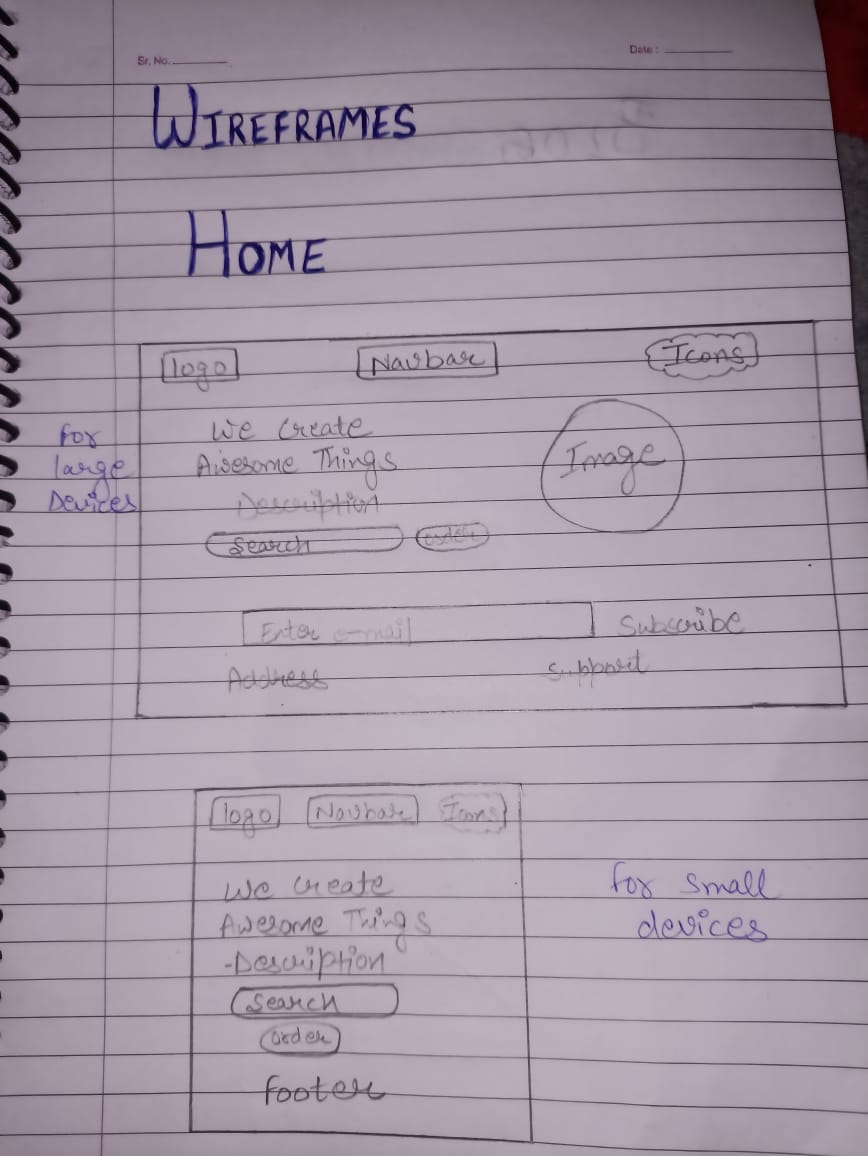 Sr. No.
Date :
WIREFRAMES
HOME
logo Navbar Icons
For large Devices
We Create
Awesome Things
Image
Description
Search order
Enter e-mail Subscribe
Address Support
logo Navbar Icons
We Create
Awesome Things
-Description
Search
order
footer
for small
devices